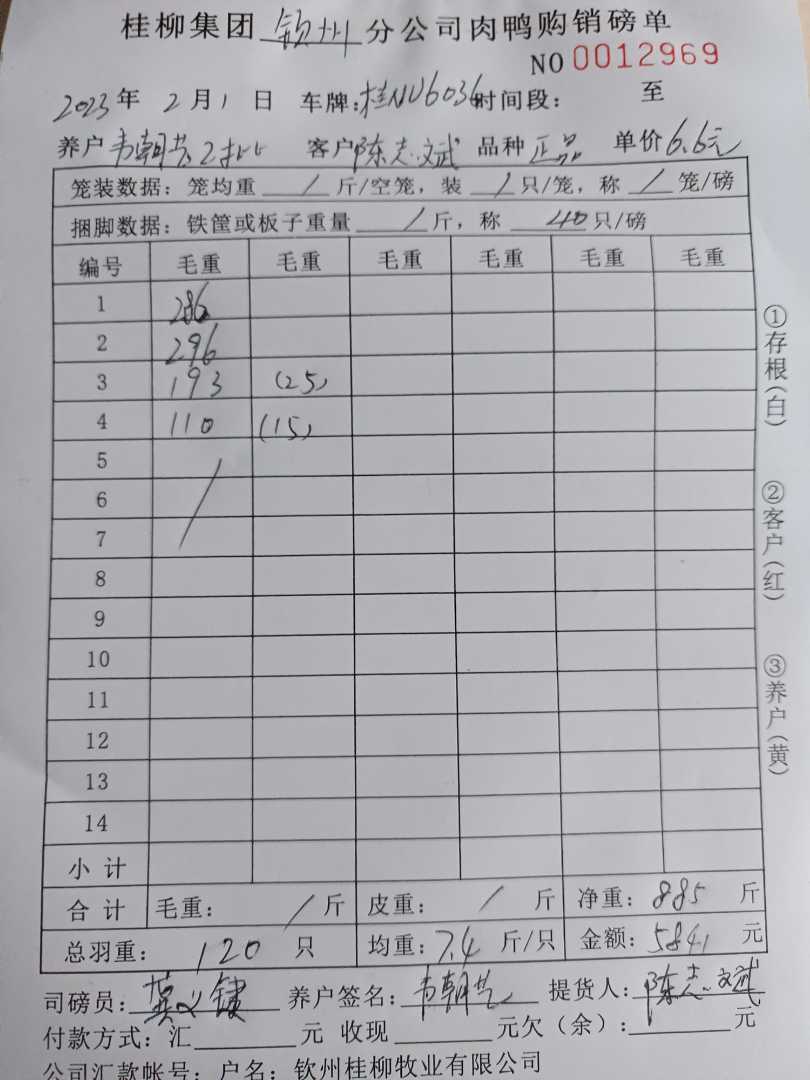 桂柳集团 钦州 分公司肉鸭购销磅单
NO 0012969
2023年 2月1日 车牌:桂NU6036 时间段: 至
养户 韦朝芸2批 客户 陈志斌 品种 正品 单价 6.6元
笼装数据: 笼均重 / 斤/空笼, 装 / 只/笼, 称 / 笼/磅
捆脚数据: 铁筐或板子重量 / 斤, 称 40只/磅
编号 毛重 毛重 毛重 毛重 毛重 毛重
1 286
2 296
3 193 (25)
4 110 (15)
5
6
7
8
9
10
11
12
13
14
小计
合计 毛重: / 斤 皮重: / 斤 净重: 885 斤
总羽重: 120 只 均重: 7.4 斤/只 金额: 5841 元
司磅员: 养户签名: 韦朝芸 提货人: 陈志斌
付款方式: 汇 元 收现 元欠(余): 元
公司汇款帐号: 户名: 钦州桂柳牧业有限公司
①存根(白)
②客户(红)
③养户(黄)